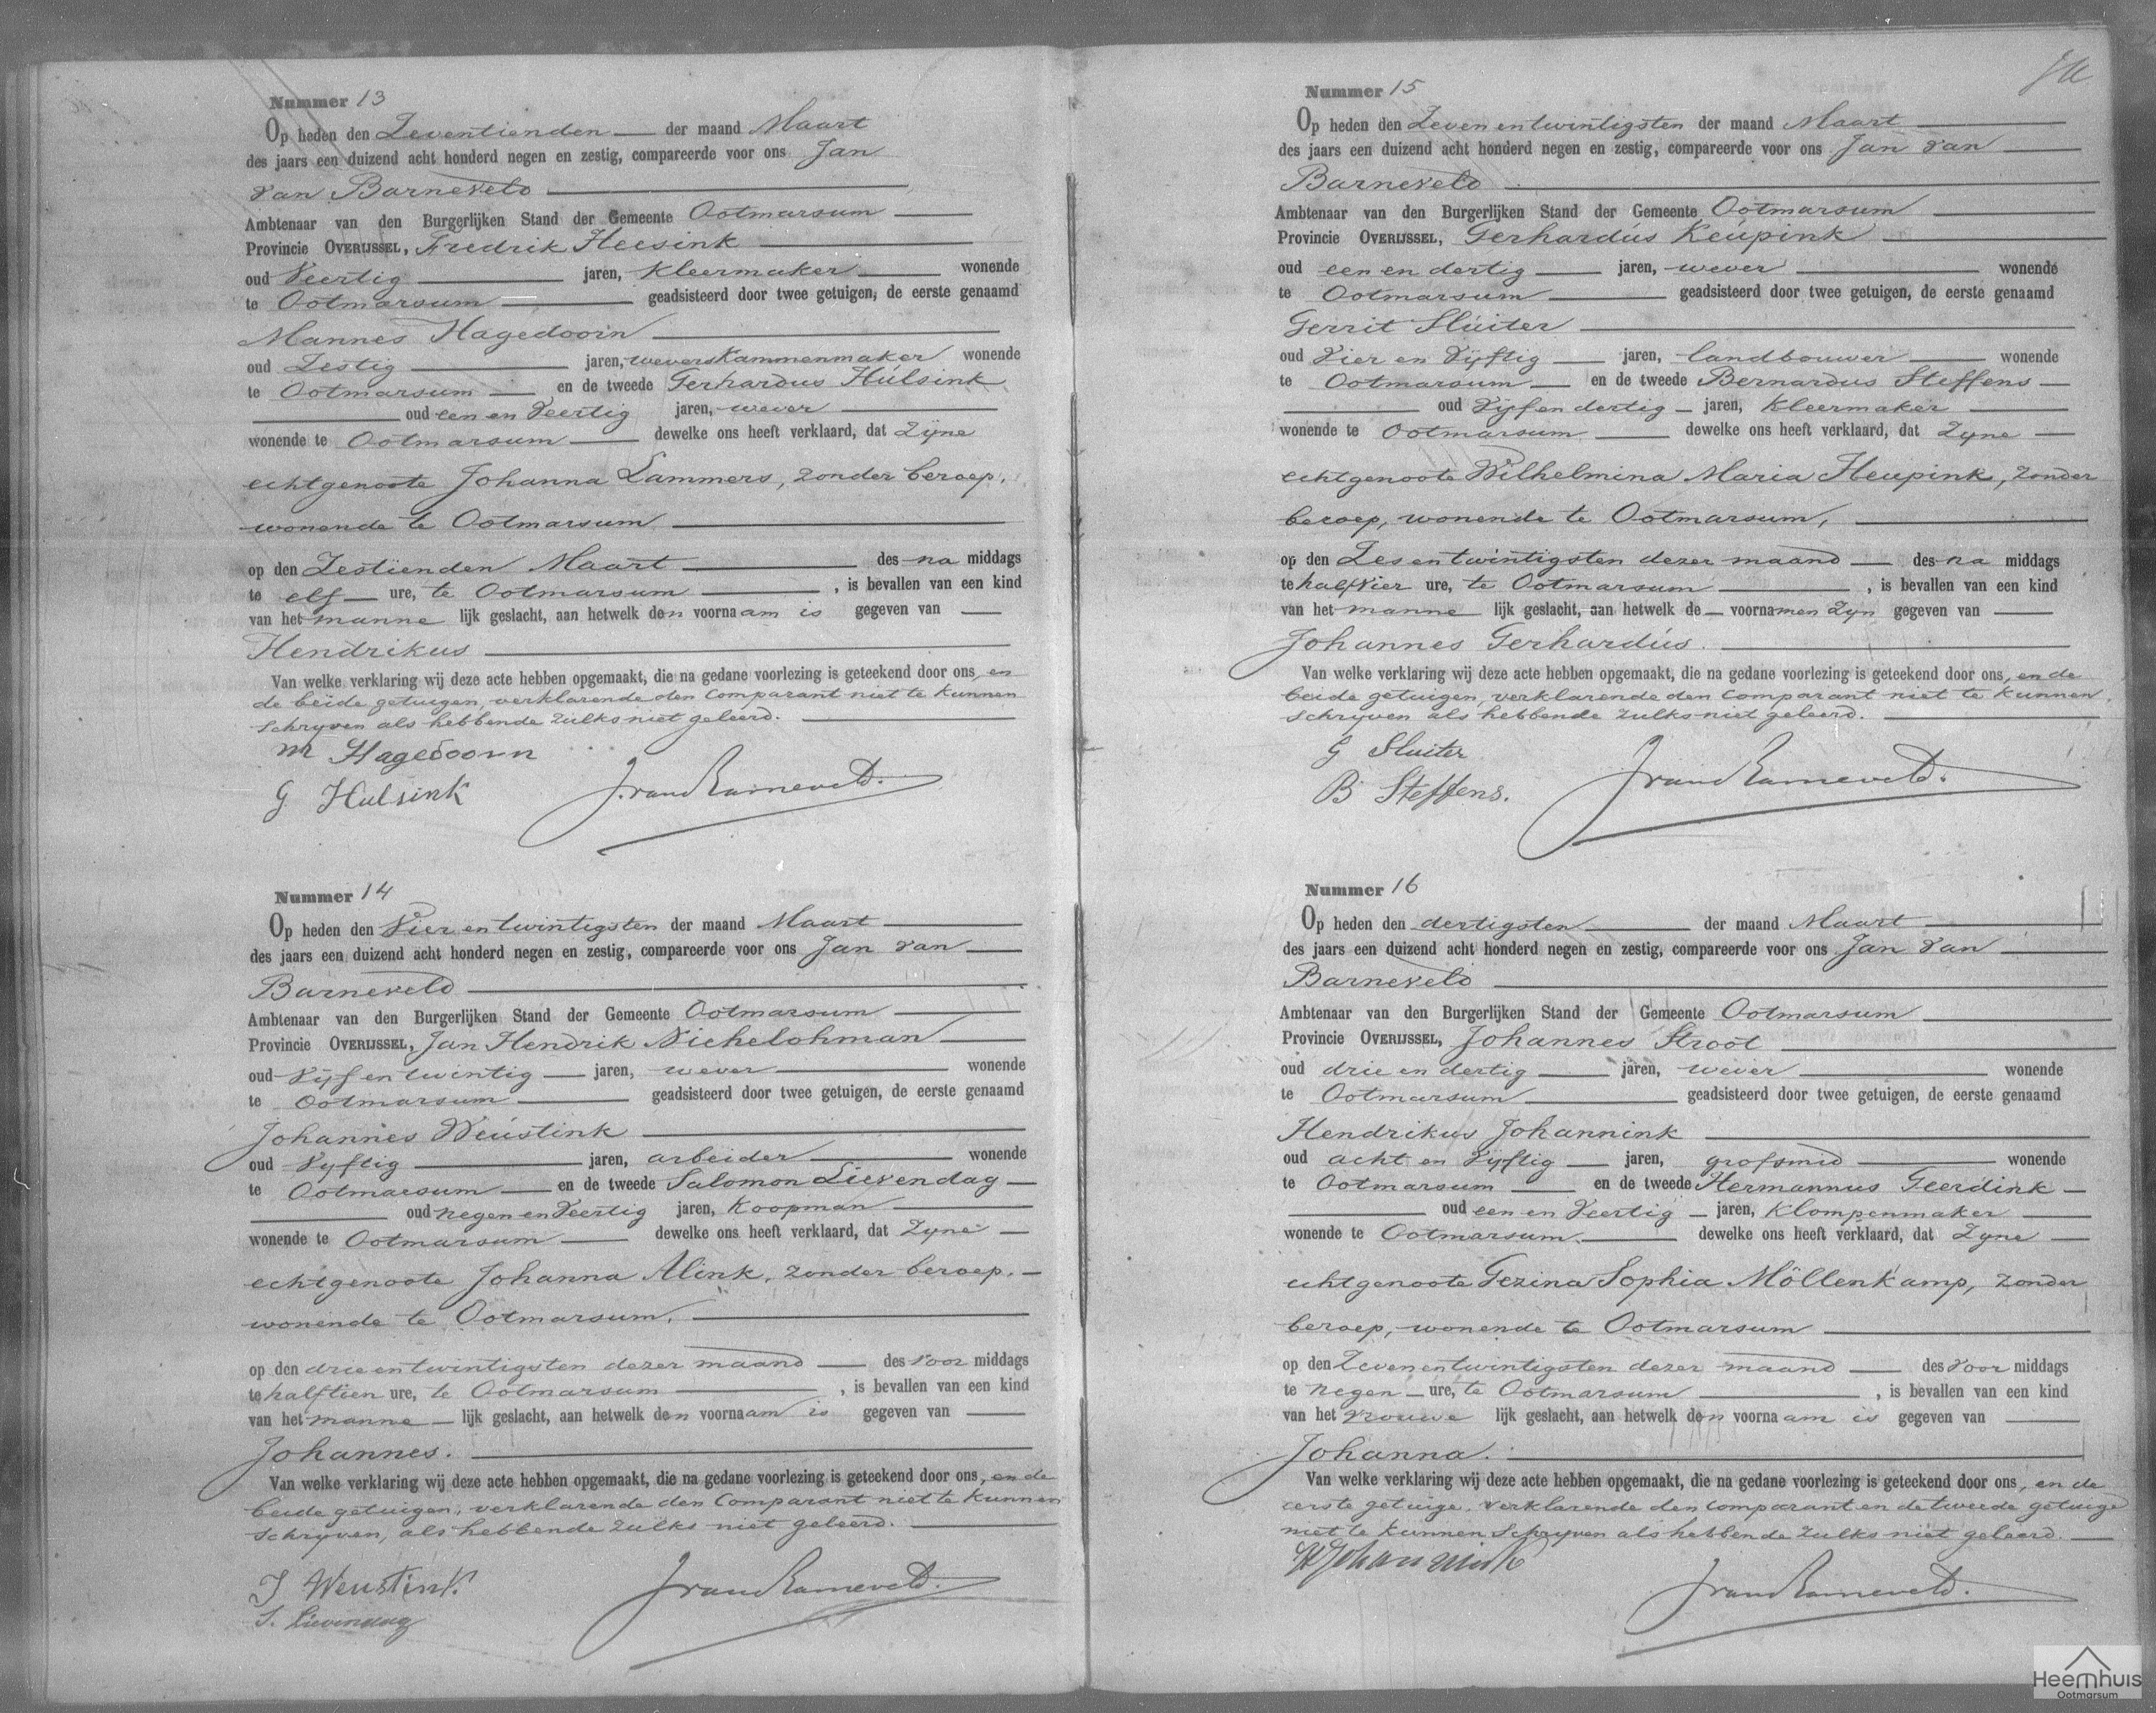 Nummer 13
Op heden den Zeventienden der maand Maart
des jaars een duizend acht honderd negen en zestig, compareerde voor ons Jan
van Barneveld
Ambtenaar van den Burgerlijken Stand der Gemeente Ootmarsum
Provincie OVERIJSSEL, Fredrik Heesink
oud Veertig jaren, Kleermaker wonende
te Ootmarsum geadsisteerd door twee getuigen, de eerste genaamd
Mannes Hagedoorn
oud Zestig jaren, weverskammenmaker wonende
te Ootmarsum en de tweede Gerhardus Hulsink
oud een en Veertig jaren, wever
wonende te Ootmarsum dewelke ons heeft verklaard, dat Zijne
echtgenoote Johanna Lammers, zonder beroep,
wonende te Ootmarsum
op den Zestienden Maart des na middags
te elf ure, te Ootmarsum, is bevallen van een kind
van het manne lijk geslacht, aan hetwelk den voornaam is gegeven van
Hendrikus
Van welke verklaring wij deze acte hebben opgemaakt, die na gedane voorlezing is geteekend door ons, en
de beide getuigen, verklarende den Comparant niet te kunnen
schrijven als hebbende zulks niet geleerd.
M Hagedoorn
G Hulsink J. van Barneveld.
Nummer 14
Op heden den Vier en twintigsten der maand Maart
des jaars een duizend acht honderd negen en zestig, compareerde voor ons Jan van
Barneveld
Ambtenaar van den Burgerlijken Stand der Gemeente Ootmarsum
Provincie OVERIJSSEL, Jan Hendrik Nichelohman
oud Vijf en twintig jaren, wever wonende
te Ootmarsum geadsisteerd door twee getuigen, de eerste genaamd
Johannes Weustink
oud Vijftig jaren, arbeider wonende
te Ootmarsum en de tweede Salomon Lievendag
oud negen en Veertig jaren, Koopman
wonende te Ootmarsum dewelke ons heeft verklaard, dat Zijne
echtgenoote Johanna Alink, zonder beroep,
wonende te Ootmarsum,
op den drie en twintigsten dezer maand des voor middags
te half tien ure, te Ootmarsum, is bevallen van een kind
van het manne lijk geslacht, aan hetwelk den voornaam is gegeven van
Johannes.
Van welke verklaring wij deze acte hebben opgemaakt, die na gedane voorlezing is geteekend door ons, en de
beide getuigen, verklarende den Comparant niet te kunnen
schrijven, als hebbende zulks niet geleerd.
J Weustink
S. Lievendag J van Barneveld.
Nummer 15
Op heden den Zeven en twintigsten der maand Maart
des jaars een duizend acht honderd negen en zestig, compareerde voor ons Jan van
Barneveld
Ambtenaar van den Burgerlijken Stand der Gemeente Ootmarsum
Provincie OVERIJSSEL, Gerhardus Keupink
oud een en dertig jaren, wever wonende
te Ootmarsum geadsisteerd door twee getuigen, de eerste genaamd
Gerrit Sluiter
oud Vier en Vijftig jaren, landbouwer wonende
te Ootmarsum en de tweede Bernardus Steffens
oud Vijf en dertig jaren, Kleermaker
wonende te Ootmarsum dewelke ons heeft verklaard, dat Zijne
echtgenoote Wilhelmina Maria Heupink, zonder
beroep, wonende te Ootmarsum,
op den Zes en twintigsten dezer maand des na middags
te half Vier ure, te Ootmarsum, is bevallen van een kind
van het manne lijk geslacht, aan hetwelk de voornamen zijn gegeven van
Johannes Gerhardus.
Van welke verklaring wij deze acte hebben opgemaakt, die na gedane voorlezing is geteekend door ons, en de
beide getuigen, verklarende den Comparant niet te kunnen
schrijven als hebbende zulks niet geleerd.
G Sluiter
B Steffens. J van Barneveld.
Nummer 16
Op heden den dertigsten der maand Maart
des jaars een duizend acht honderd negen en zestig, compareerde voor ons Jan van
Barneveld
Ambtenaar van den Burgerlijken Stand der Gemeente Ootmarsum
Provincie OVERIJSSEL, Johannes Stroot
oud drie en dertig jaren, wever wonende
te Ootmarsum geadsisteerd door twee getuigen, de eerste genaamd
Hendrikus Johannink
oud acht en Vijftig jaren, grofsmid wonende
te Ootmarsum en de tweede Hermannus Geerdink
oud een en Veertig jaren, Klompenmaker
wonende te Ootmarsum dewelke ons heeft verklaard, dat Zijne
echtgenoote Gezina Sophia Möllenkamp, zonder
beroep, wonende te Ootmarsum
op den Zeven en twintigsten dezer maand des voor middags
te negen ure, te Ootmarsum, is bevallen van een kind
van het vrouwe lijk geslacht, aan hetwelk den voornaam is gegeven van
Johanna.
Van welke verklaring wij deze acte hebben opgemaakt, die na gedane voorlezing is geteekend door ons, en de
eerste getuige, verklarende den Comparant en de tweede getuige
niet te kunnen schrijven als hebbende zulks niet geleerd.
H Johannink
J van Barneveld.
Heemhuis
Ootmarsum